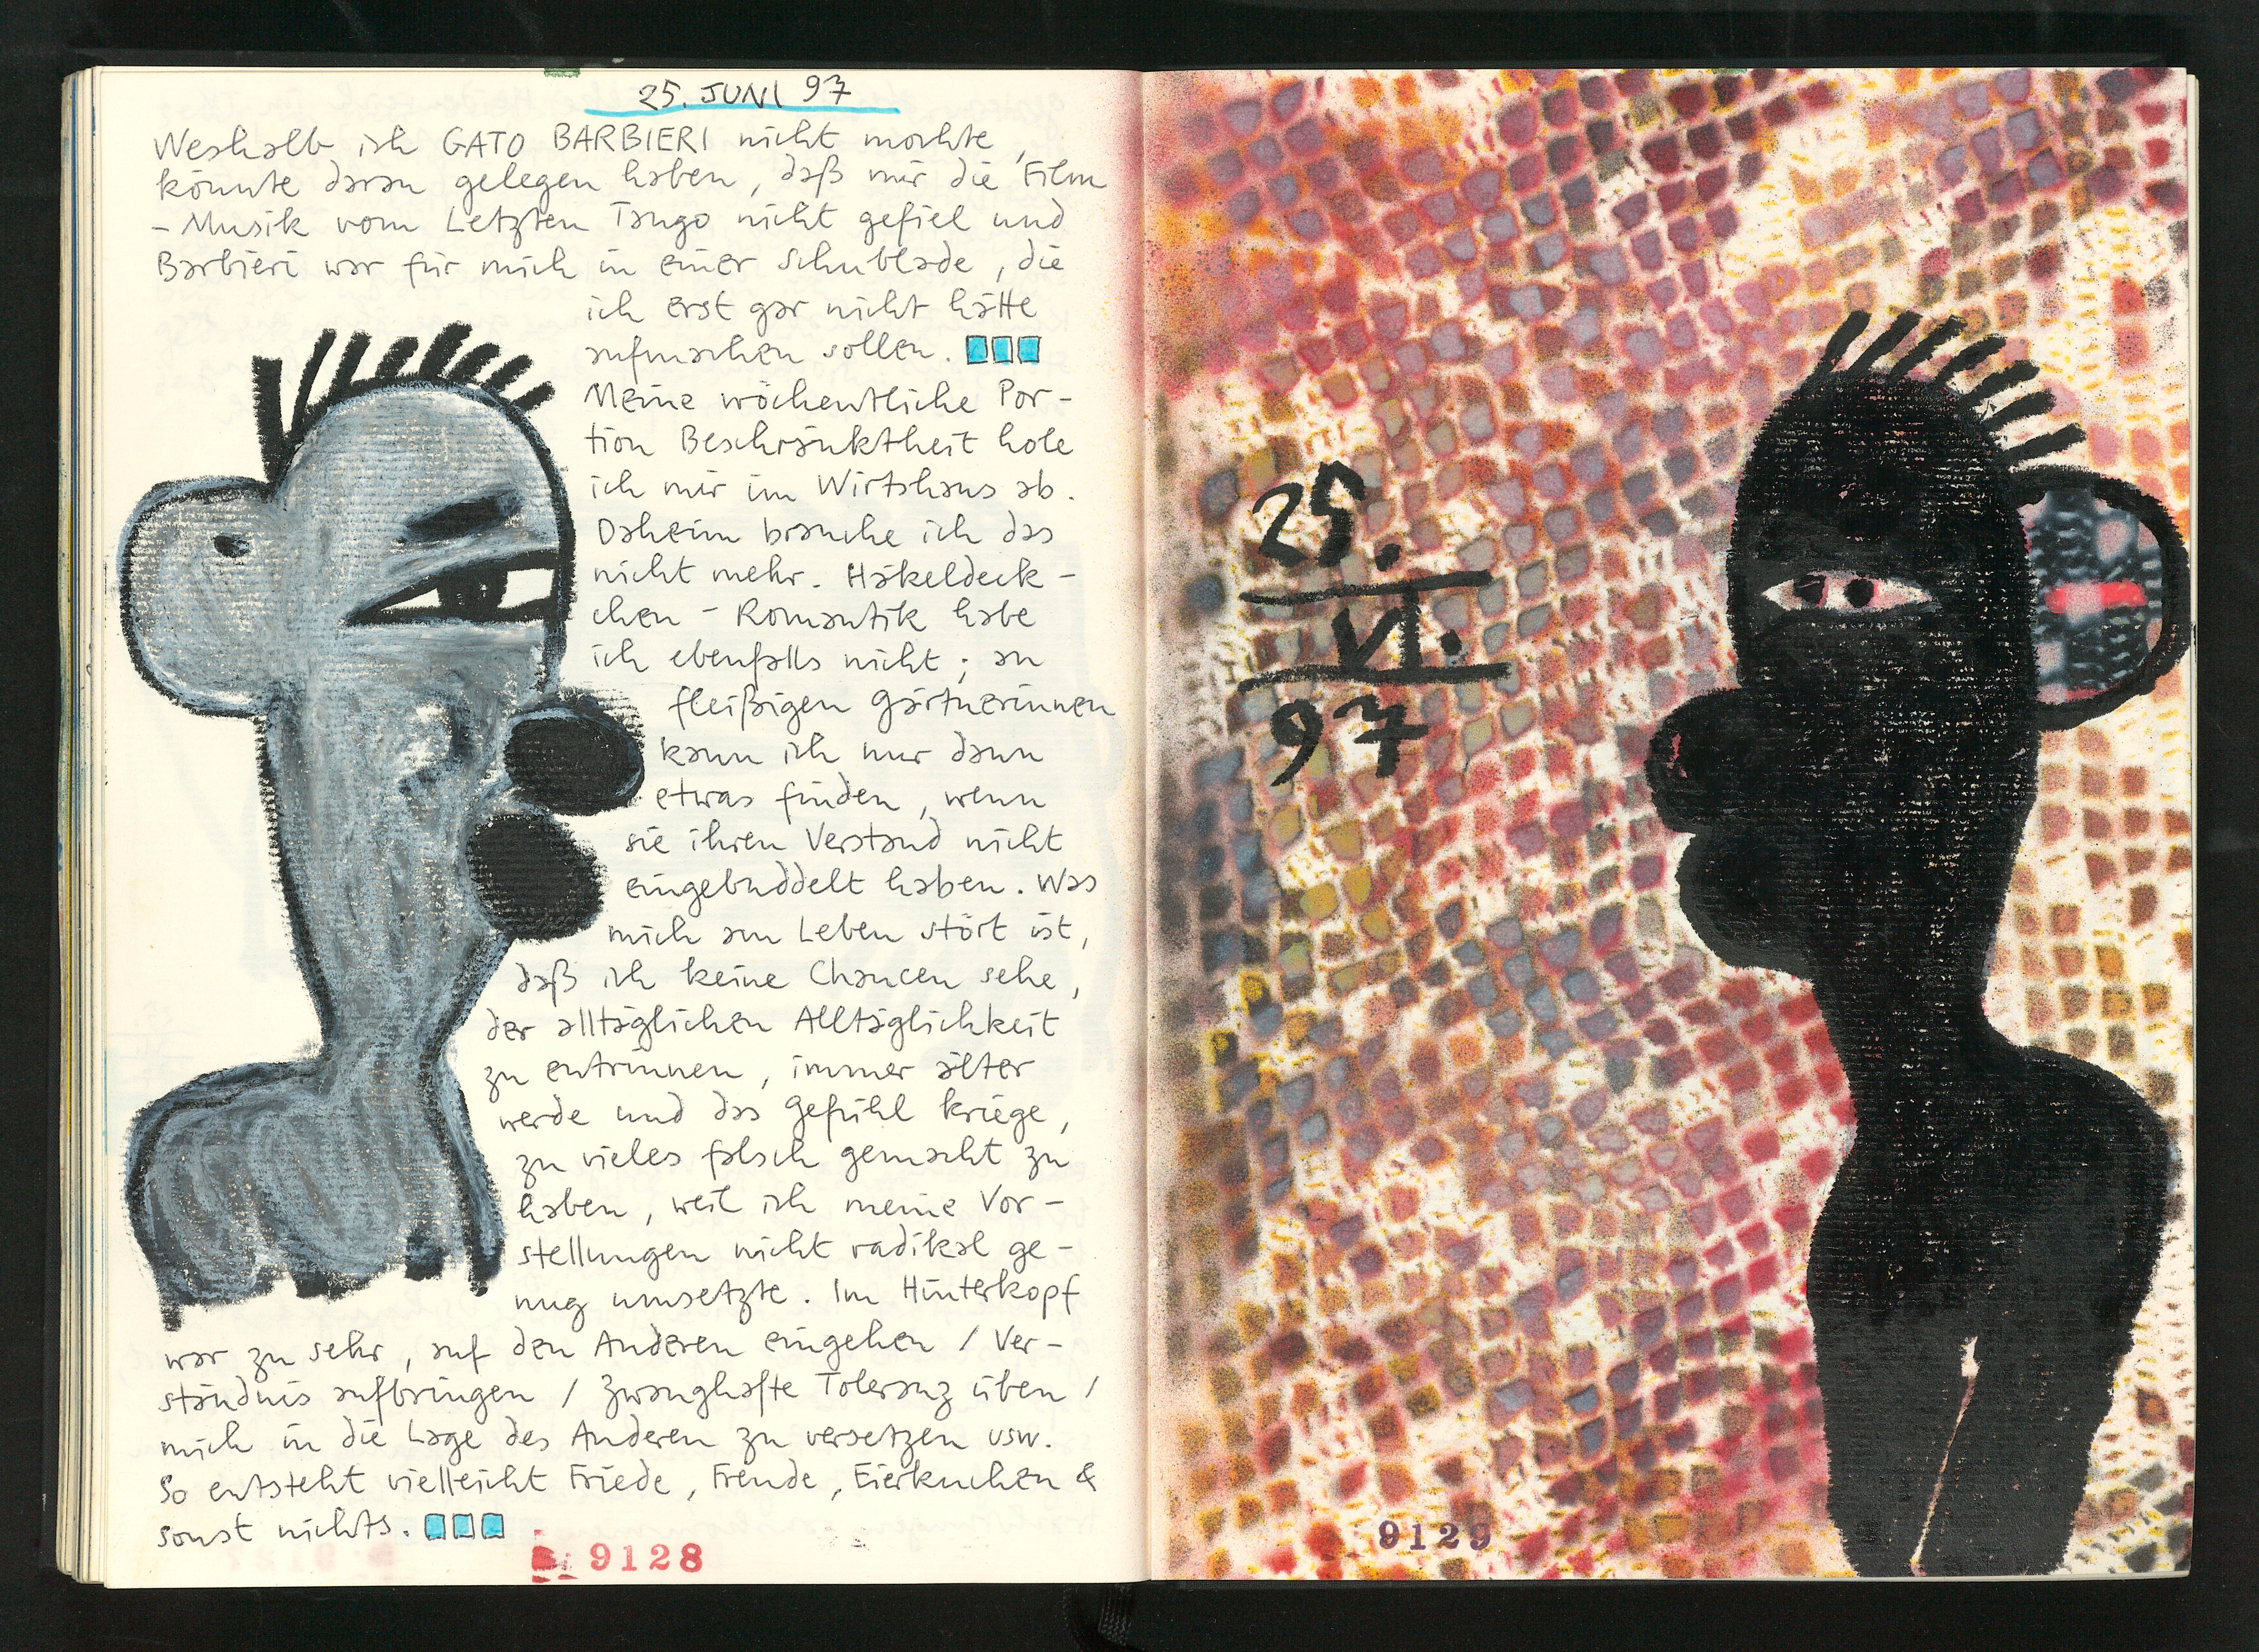 25. JUNI 97
Weshalb ich GATO BARBIERI nicht mochte,
könnte daran gelegen haben, daß mir die Film
- Musik vom Letzten Tango nicht gefiel und
Barbieri war für mich in einer Schublade, die
ich erst gar nicht hätte
aufmachen sollen.
Meine wöchentliche Por-
tion Beschränktheit hole
ich mir im Wirtshaus ab.
Daheim brauche ich das
nicht mehr. Häkeldeck-
chen - Romantik habe
ich ebenfalls nicht; an
fleißigen Gärtnerinnen
kann ich nur dann
etwas finden, wenn
sie ihren Verstand nicht
eingebuddelt haben. Was
mich am Leben stört ist,
daß ich keine Chancen sehe,
der alltäglichen Alltäglichkeit
zu entrinnen, immer älter
werde und das Gefühl kriege,
zu vieles falsch gemacht zu
haben, weil ich meine Vor-
stellungen nicht radikal ge-
nug umsetzte. Im Hinterkopf
war zu sehr, auf den Anderen eingehen / Ver-
ständnis aufbringen / zwanghafte Toleranz üben /
mich in die Lage des Anderen zu versetzen usw.
So entsteht vielleicht Friede, Freude, Eierkuchen &
sonst nichts.
9128
25.
VI.
97
9129